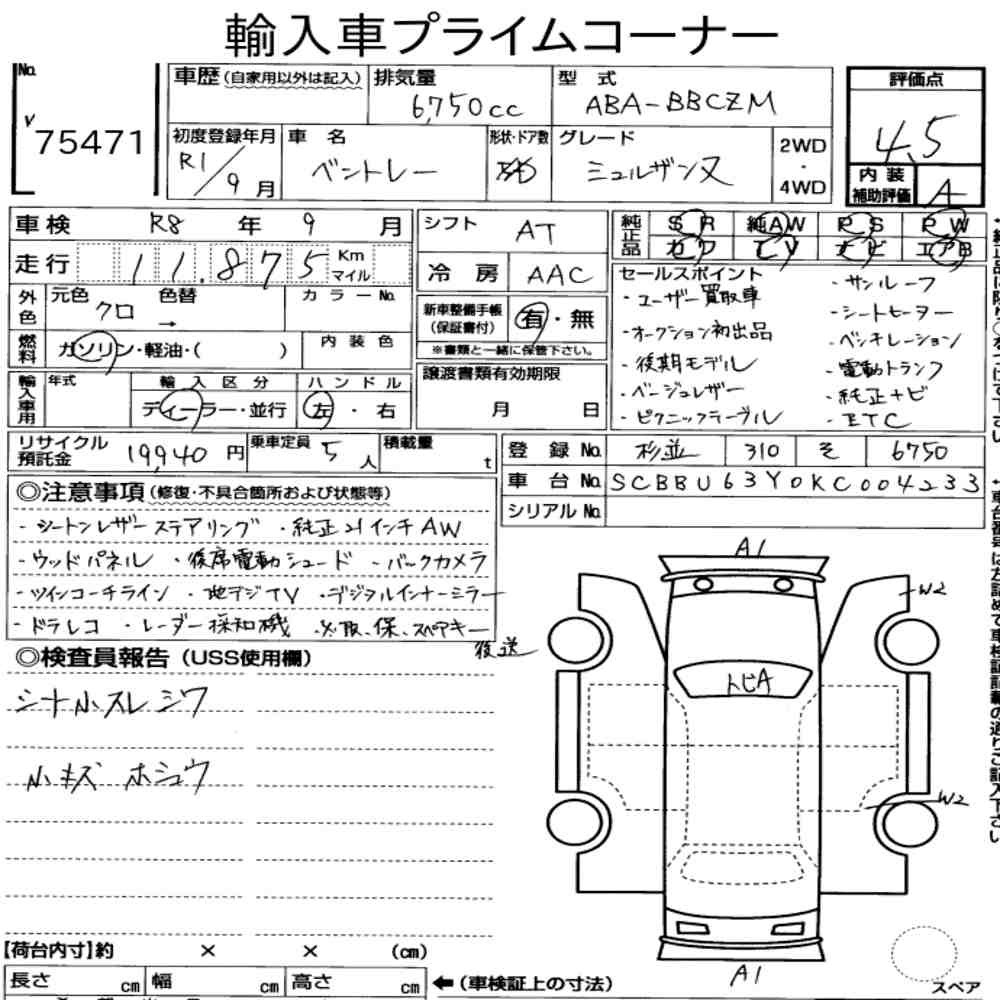 輸入車プライムコーナー
No.
V
75471
車歴(自家用以外は記入)
排気量
6,750cc
型 式
ABA-BBCZM
評価点
4.5
内装
補助評価
A
初度登録年月
R1/9月
車 名
ベントレー
形状・ドア数
グレード
ミュルザンヌ
2WD
・
4WD
車検 R8 年 9 月
走行 11.875 Km
マイル
シフト AT
冷 房 AAC
純正品
SR 純AW PS PW
カワ TV ナビ エアB
外色
元色
クロ
色替
→
カラーNo.
燃料
ガソリン・軽油・( )
内装色
新車整備手帳
(保証書付)
有・無
※書類と一緒に保管下さい。
セールスポイント
・ユーザー買取車
・オークション初出品
・後期モデル
・ベージュレザー
・ピクニックテーブル
・サンルーフ
・シートヒーター
・ベンチレーション
・電動トランク
・純正ナビ
・ETC
輸入車用
年式
輸入区分
ディーラー・並行
ハンドル
左・右
譲渡書類有効期限
月 日
リサイクル
預託金
19,940円
乗車定員
5人
積載量
t
登 録 No. 杉並 310 そ 6750
車 台 No. SCBBU63Y0KC004233
シリアル No.
◎注意事項(修復・不具合箇所および状態等)
・シートンレザーステアリング ・純正21インチAW
・ウッドパネル ・後席電動シェード ・バックカメラ
・ツインコーチライン ・地デジTV ・デジタルインナーミラー
・ドラレコ ・レーダー探知機 ・※取、保、スペアキー
後送
◎検査員報告(USS使用欄)
シート小スレ シワ
小キズ ホシュウ
A1
W2
トビA
W2
A1
【荷台内寸】約 × × (cm)
長さ cm 幅 cm 高さ cm
←(車検証上の寸法)
スペア